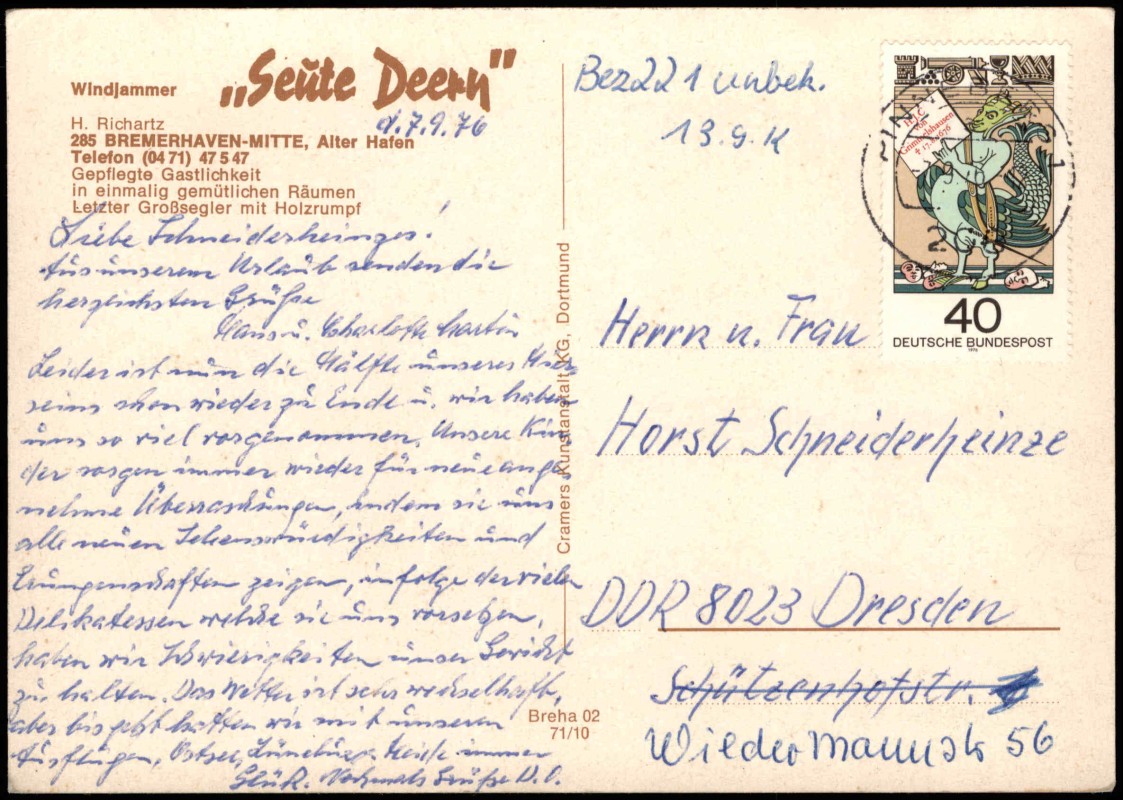 Windjammer „Seute Deern"
d. 7.9.76
H. Richartz
285 BREMERHAVEN-MITTE, Alter Hafen
Telefon (04 71) 4 75 47
Gepflegte Gastlichkeit
in einmalig gemütlichen Räumen
Letzter Großsegler mit Holzrumpf
Liebe Schneiderheinzes!
Aus unserem Urlaub senden die
herzlichsten Grüße
Hans u. Charlotte
Leider ist nun die Hälfte unseres Hier-
seins schon wieder zu Ende u. wir haben
uns so viel vorgenommen. Unsere Kin-
der sorgen immer wieder für neue ange-
nehme Überraschungen, indem sie uns
alle neuen Sehenswürdigkeiten und
Errungenschaften zeigen, infolge der vielen
Delikatessen welche sie uns vorsetzen,
haben wir Schwierigkeiten unser Gewicht
zu halten. Das Wetter ist sehr wechselhaft,
aber bis jetzt hatten wir mit unseren
Ausflügen, Ostsee, Lüneburger Heide immer
Glück. Nochmals Grüße D. O.
Cramers Kunstanstalt KG, Dortmund
Breha 02
71/10
Bez 22 1 unbek.
13.9. K
H.J.C.
von
Grimmelshausen
† 17.8.1676
40
DEUTSCHE BUNDESPOST
1976
Herrn u. Frau
Horst Schneiderheinze
DDR 8023 Dresden
Schützenhofstr.
Wildermannstr 56